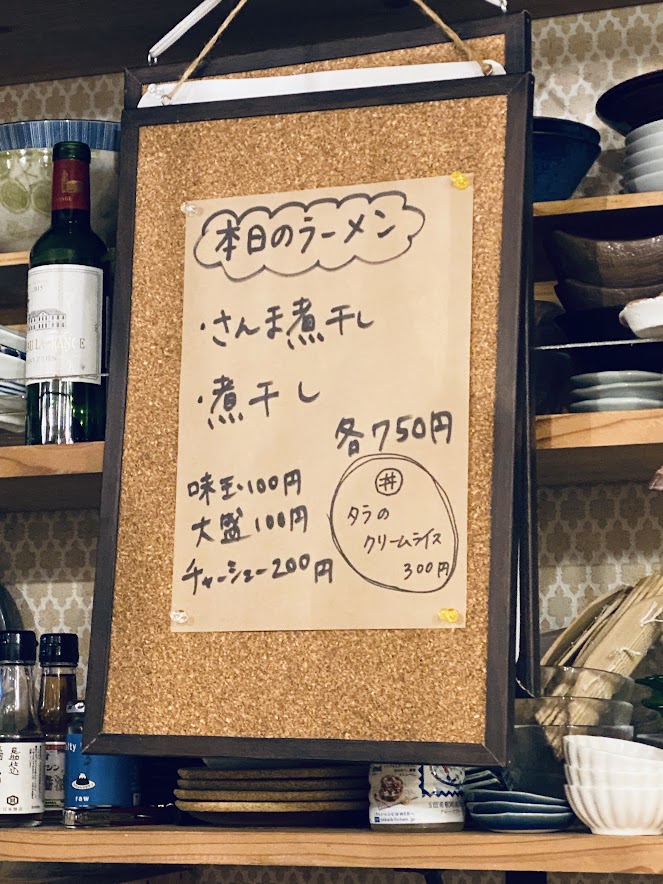 本日のラーメン
・さんま煮干し
・煮干し
各750円
味玉・100円
大盛100円
チャーシュー200円
丼
タラの
クリームライス
300円
2015
raw